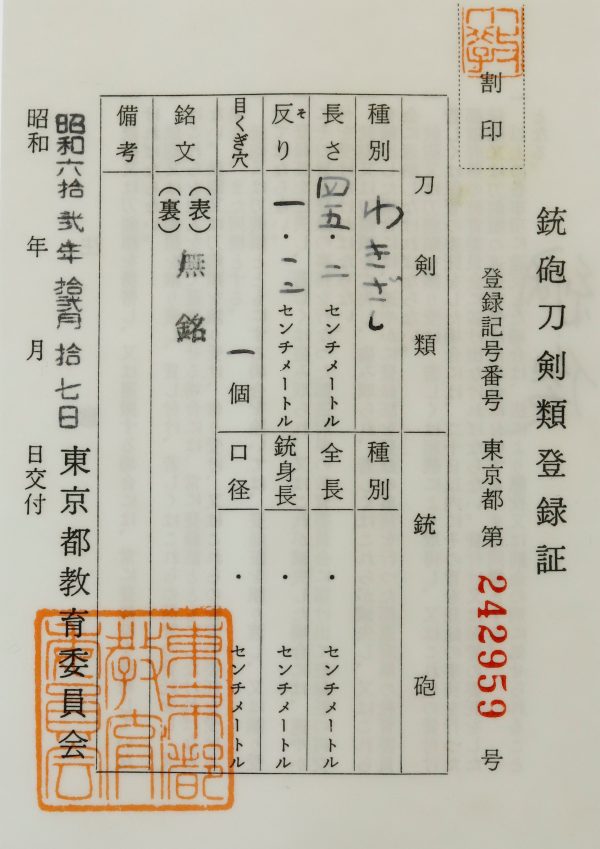 割印
銃砲刀剣類登録証
登録記号番号 東京都 第 242959 号
刀剣類
種別 わきざし
長さ 四五・二 センチメートル
反り 一・二 センチメートル
そ
目くぎ穴 一個
銘文 (表) 無銘
(裏)
備考
銃砲
種別
全長 ・ センチメートル
銃身長 ・ センチメートル
口径 ・ センチメートル
昭和六拾弐年拾弐月拾七日
昭和 年 月 日交付
東京都教育委員会
東京都
教育
委員会